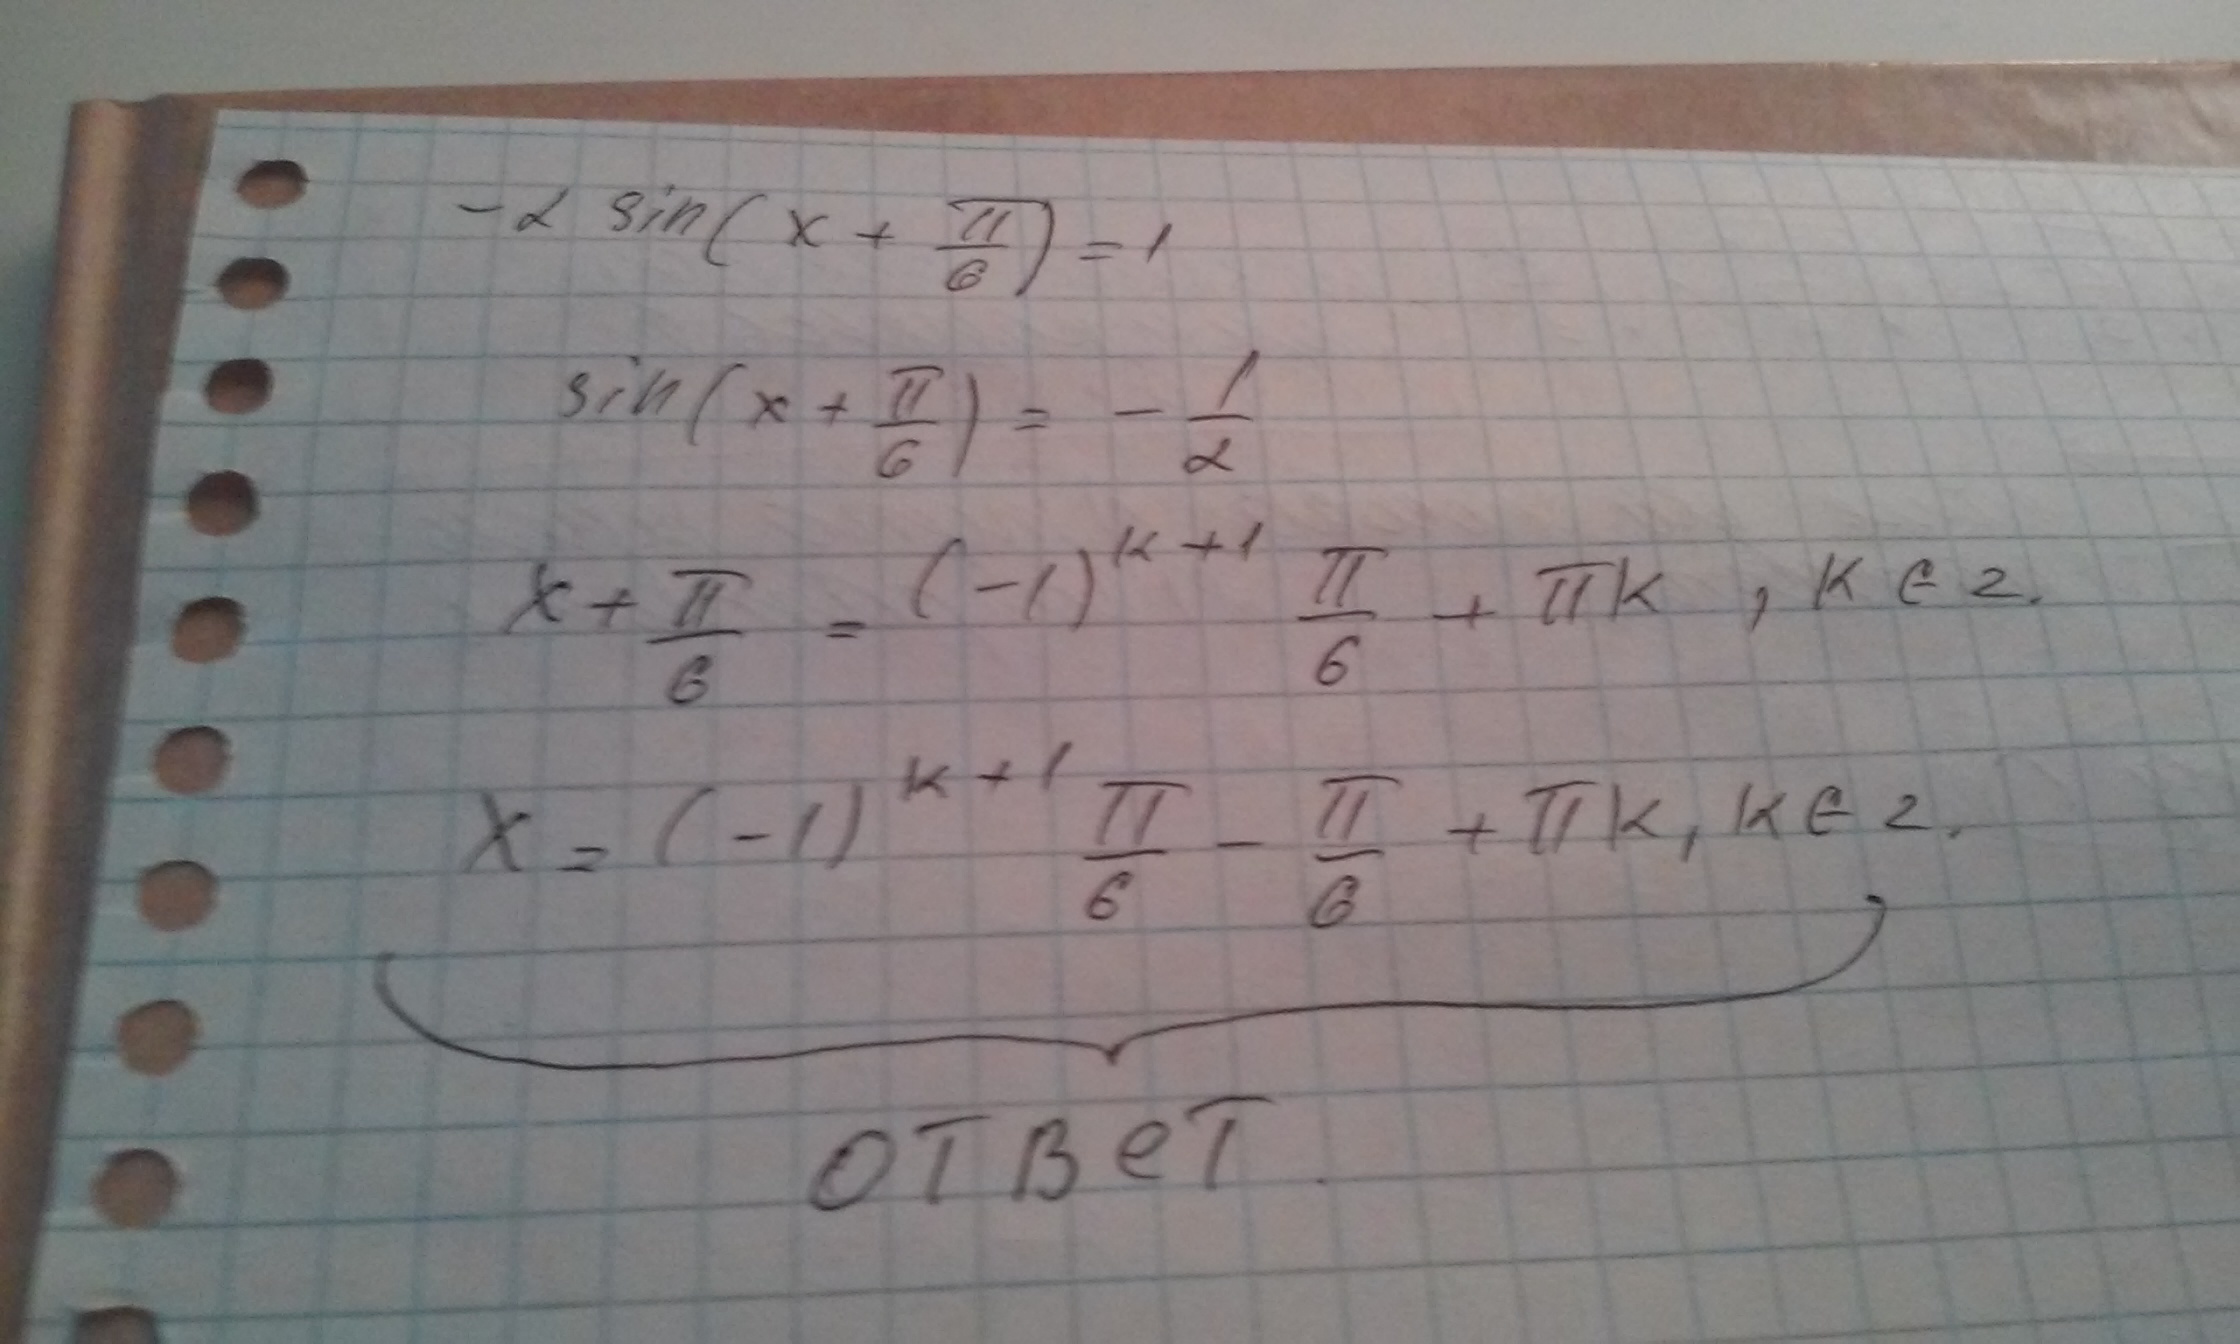 -2 sin(x + π/6) = 1
sin(x + π/6) = - 1/2
x + π/6 = (-1)^(k+1) π/6 + πk, k ∈ z.
x = (-1)^(k+1) π/6 - π/6 + πk, k ∈ z.
ответ.